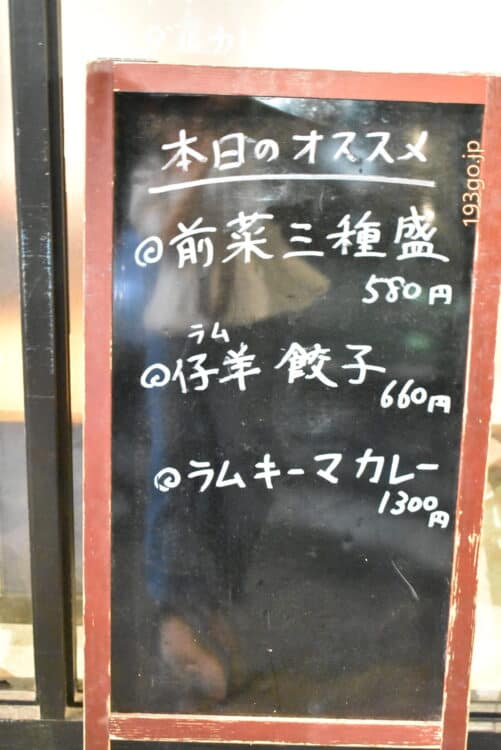 本日のオススメ
@前菜三種盛
580円
ラム
@仔羊 餃子
660円
@ラムキーマカレー
1300円
193go.jp